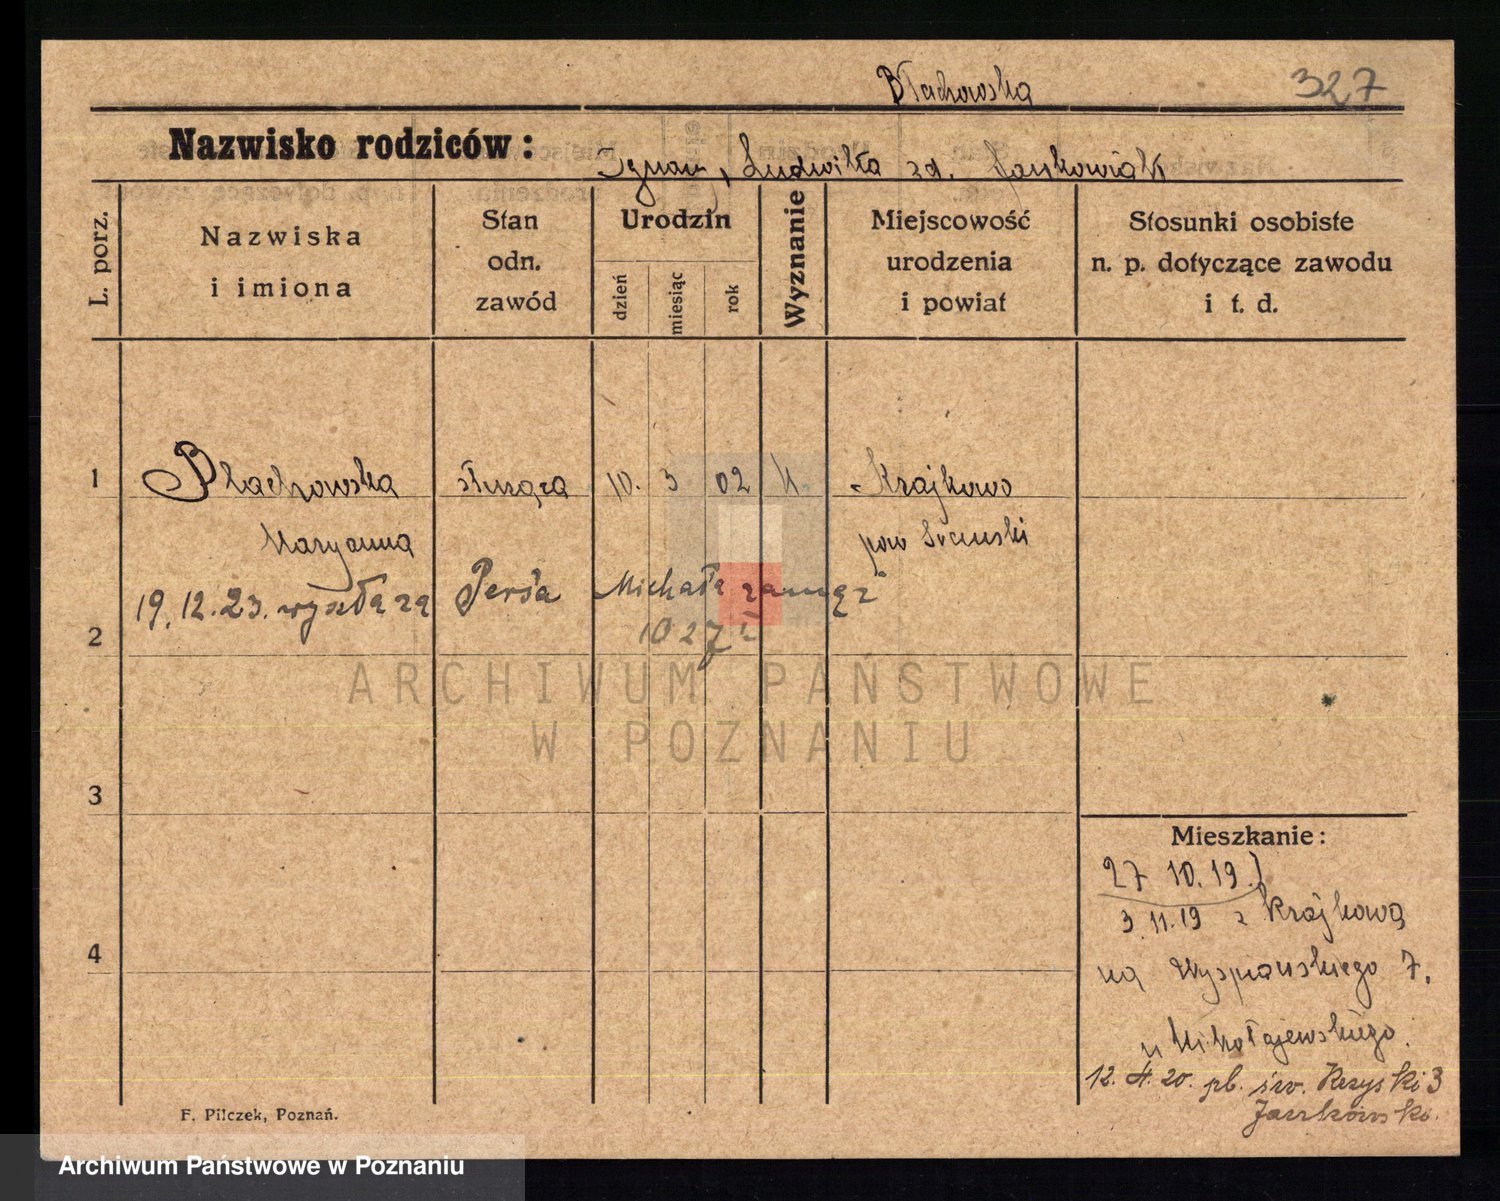 Błachowska 327
Nazwisko rodziców: Ignacy, Ludwika zd. Jankowiak
L. porz.
Nazwiska i imiona
Stan odn. zawód
Urodzin
dzień miesiąc rok
Wyznanie
Miejscowość urodzenia i powiat
Stosunki osobiste n. p. dotyczące zawodu i t. d.
1 Błachowska służąca 10. 3 02 k. Krajkowo
Maryanna pow Śremski
19.12.23. wyszła za Persa Michała zamąż
2
1027
ARCHIWUM PAŃSTWOWE
W POZNANIU
3
Mieszkanie:
27 10.19.
3.11.19 z Krajkowa
4
na Wyspiańskiego 7.
u Mikołajewskiego.
12.4.20. pl. św. Krzyski 3
Jankowska.
F. Pilczek, Poznań.
Archiwum Państwowe w Poznaniu